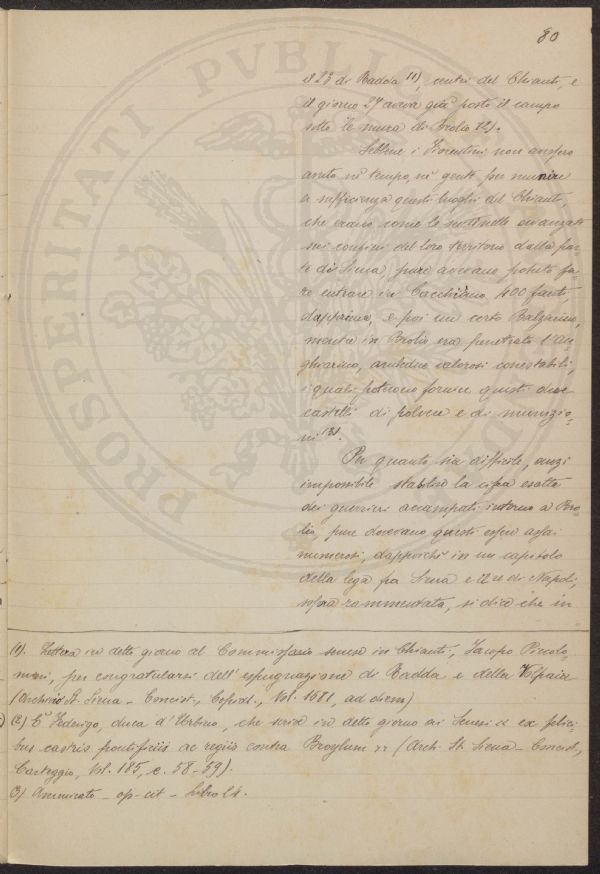 80
il 23 di Radda (1), centri del Chianti, e
il giorno 27 aveva già posto il campo
sotto le mura di Brolio (2).
Sebbene i Fiorentini non avessero
avuto nè tempo, nè gente per munire
a sufficienza questi luoghi del Chianti,
che erano come le sentinelle avanzate
sui confini del loro territorio dalla par-
te di Siena, pure avevano potuto fa-
re entrare in Cacchiano 400 fanti,
dapprima, e poi un certo Balzanino,
mentre in Brolio era penetrato l'An-
ghiarino, ambedue valorosi conestabili,
i quali poterono fornire questi due
castelli di polvere e di munizio-
ni (3).
Per quanto sia difficile, anzi
impossibile stabilire la cifra esatta
dei guerrieri accampati intorno a Bro-
lio, pure dovevano questi essere assai
numerosi, dappoichè in un capitolo
della lega fra Siena e il re di Napoli,
sopra rammentata, si dice che in
(1). Lettera in detto giorno al Commissario senese in Chianti, Jacopo Piccolo-
mini, per congratularsi dell'espugnazione di Radda e della Volpaia
(Archivio St. Siena - Concist., Copial., Vol. 1681, ad diem)
(2) È Federigo, duca d'Urbino, che scrive in detto giorno ai Senesi "ex felici-
bus castris pontificiis ac regiis contra Broylum" (Arch. St. Siena - Concist.,
Carteggio, Vol. 185, c. 58-59).
(3) Ammirato - op. cit - Libro 24.
PROSPERITATI PVBLICAE